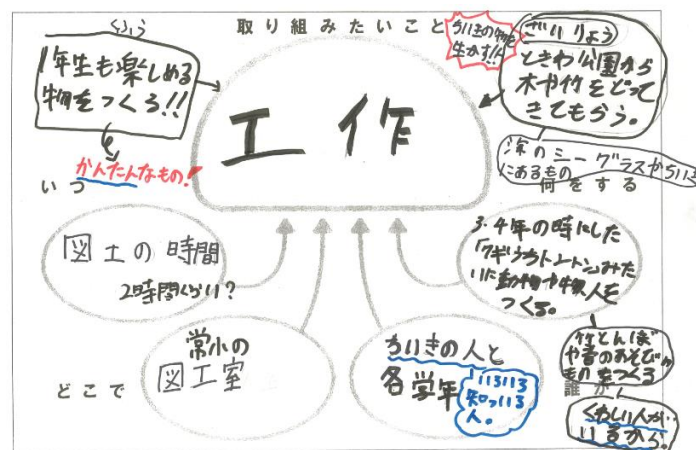 取り組みたいこと
くふう
1年生も楽しめる
物をつくる!!
かんたんなもの!
工作
ちいきの物を
生かす!!
ざいりょう
ときわ公園から
木や竹をとって
きてもらう。
シーグラスからちいき
にあるもの
いつ
図工の時間
2時間くらい?
何をする
3・4年の時にした
「クギうちトントン」みた
いに動物や
つくる。
竹とんぼ
や昔のあそび
ものをつくる
どこで
常小の
図工室
誰が
ちいきの人と
各学年
いろいろ
知っいる
人。
くわしい人が
いるから。